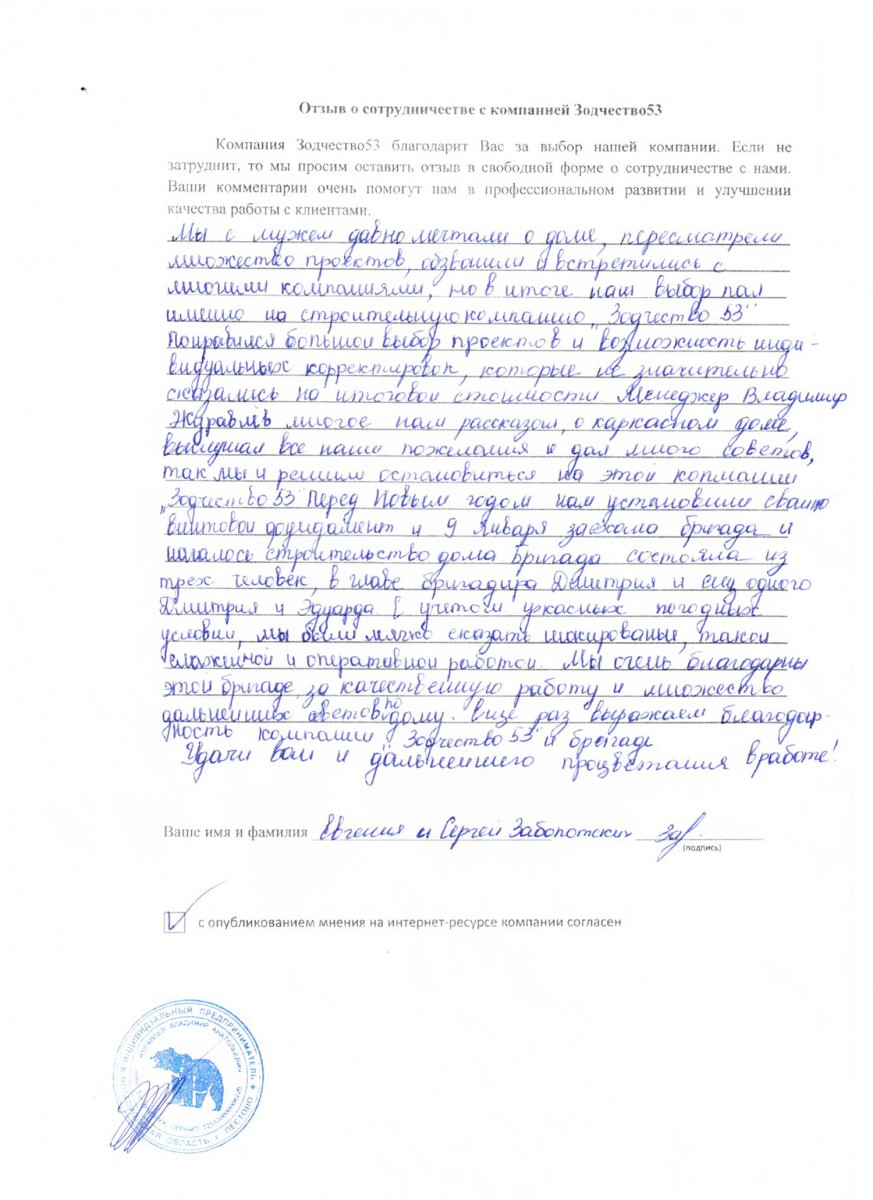 Отзыв о сотрудничестве с компанией Зодчество53
Компания Зодчество53 благодарит Вас за выбор нашей компании. Если не
затруднит, то мы просим оставить отзыв в свободной форме о сотрудничестве с нами.
Ваши комментарии очень помогут нам в профессиональном развитии и улучшении
качества работы с клиентами.
Мы с мужем давно мечтали о доме, пересмотрели
множество проектов, обзвонили и встретились с
многими компаниями, но в итоге наш выбор пал
именно на строительную компанию „Зодчество 53"
Понравился большой выбор проектов и возможность инди-
видуальных корректировок, которые не значительно
сказались на итоговой стоимости. Менеджер Владимир
Журавлёв многое нам рассказал, о каркасном доме,
выслушал все наши пожелания и дал много советов,
так мы и решили остановиться на этой копмании
„Зодчество 53" Перед Новым годом нам установили свайно
винтовой фундамент и 9 Января заехала бригада и
началось строительство дома Бригада состояла из
трех человек, в главе бригадира Дмитрия и ещё одного
Дмитрия и Эдуарда С учетом ужасных погодных
условий, мы были мягко сказать шокированы, такой
слаженной и оперативной работой. Мы очень благодарны
этой бригаде за качественную работу и множество
дальнейших советов по дому. Еще раз выражаем благодар-
ность компании „Зодчество 53" и бригаде
Удачи вам и дальнейшего процветания в работе!
Ваше имя и фамилия Евгения и Сергей Заболотских
(подпись)
с опубликованием мнения на интернет-ресурсе компании согласен
ИНДИВИДУАЛЬНЫЙ ПРЕДПРИНИМАТЕЛЬ
ЖУРАВЛЕВ ВЛАДИМИР АНАТОЛЬЕВИЧ
ОБЛАСТЬ г. ПЕСТОВО